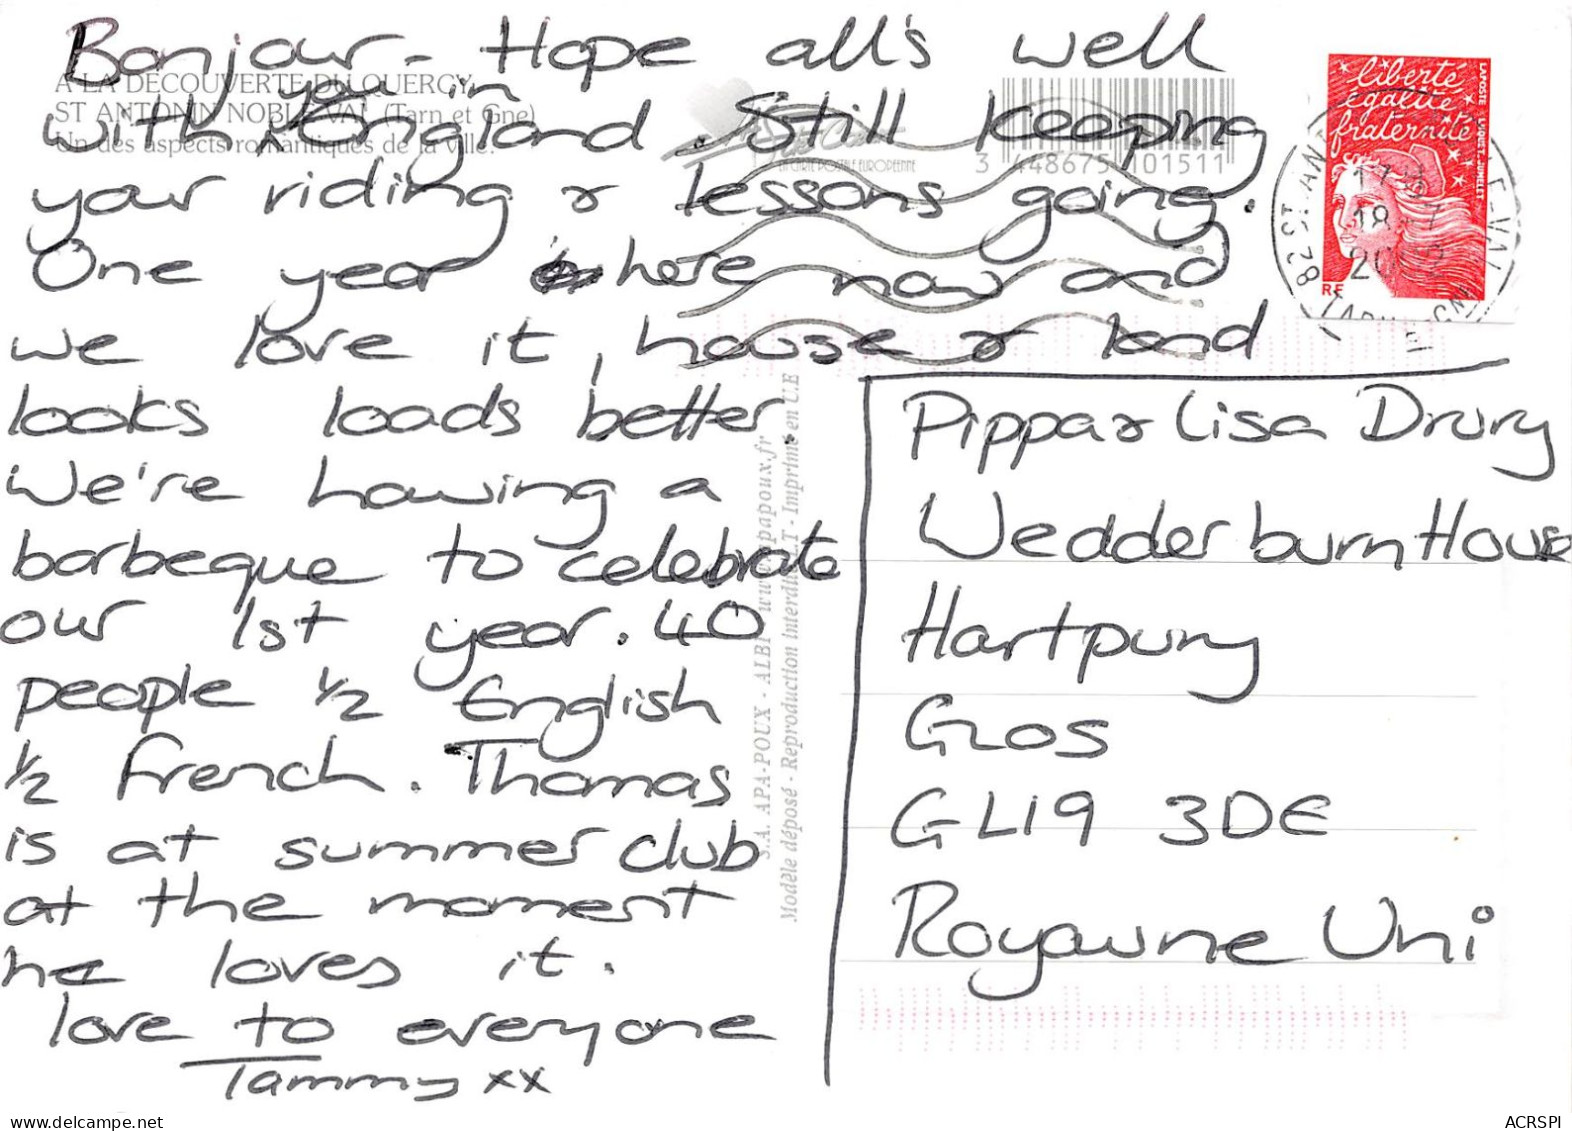 Bonjour - Hope all's well
A LA DÉCOUVERTE DU QUERCY
you in
ST ANTONIN NOBLE VAL (Tarn et Gne)
with England. Still keeping
Un des aspects romantiques de la ville.
LA CARTE POSTALE EUROPÉENNE
3 448675 101511
your riding & lessons going.
One year here now and
we love it, house & land
looks loads better.
We're having a
barbeque to celebrate
our 1st year. 40
people 1/2 English
1/2 French. Thomas
is at summer club
at the moment
he loves it.
love to everyone
Tammy xx
S.A. APA-POUX - ALBI - www.apapoux.fr
Modèle déposé - Reproduction interdite L.T - Imprimé en U.E
liberté
égalité
fraternité
LAPOSTE LUQUET-JUMELET
RF
82 ST ANT
Pippa & Lisa Drury
Wedderburn House
Hartpury
Glos
GL19 3DE
Royaume Uni
www.delcampe.net
ACRSPI